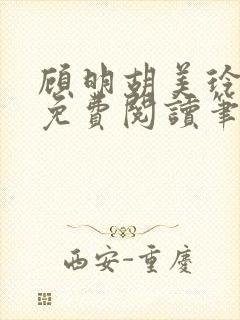 顾明胡美玲
免费阅读笔
西安-重慶